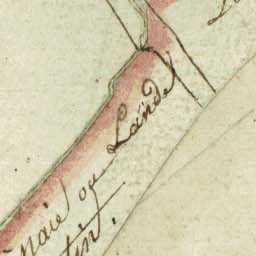 naie ou Lande
tin.